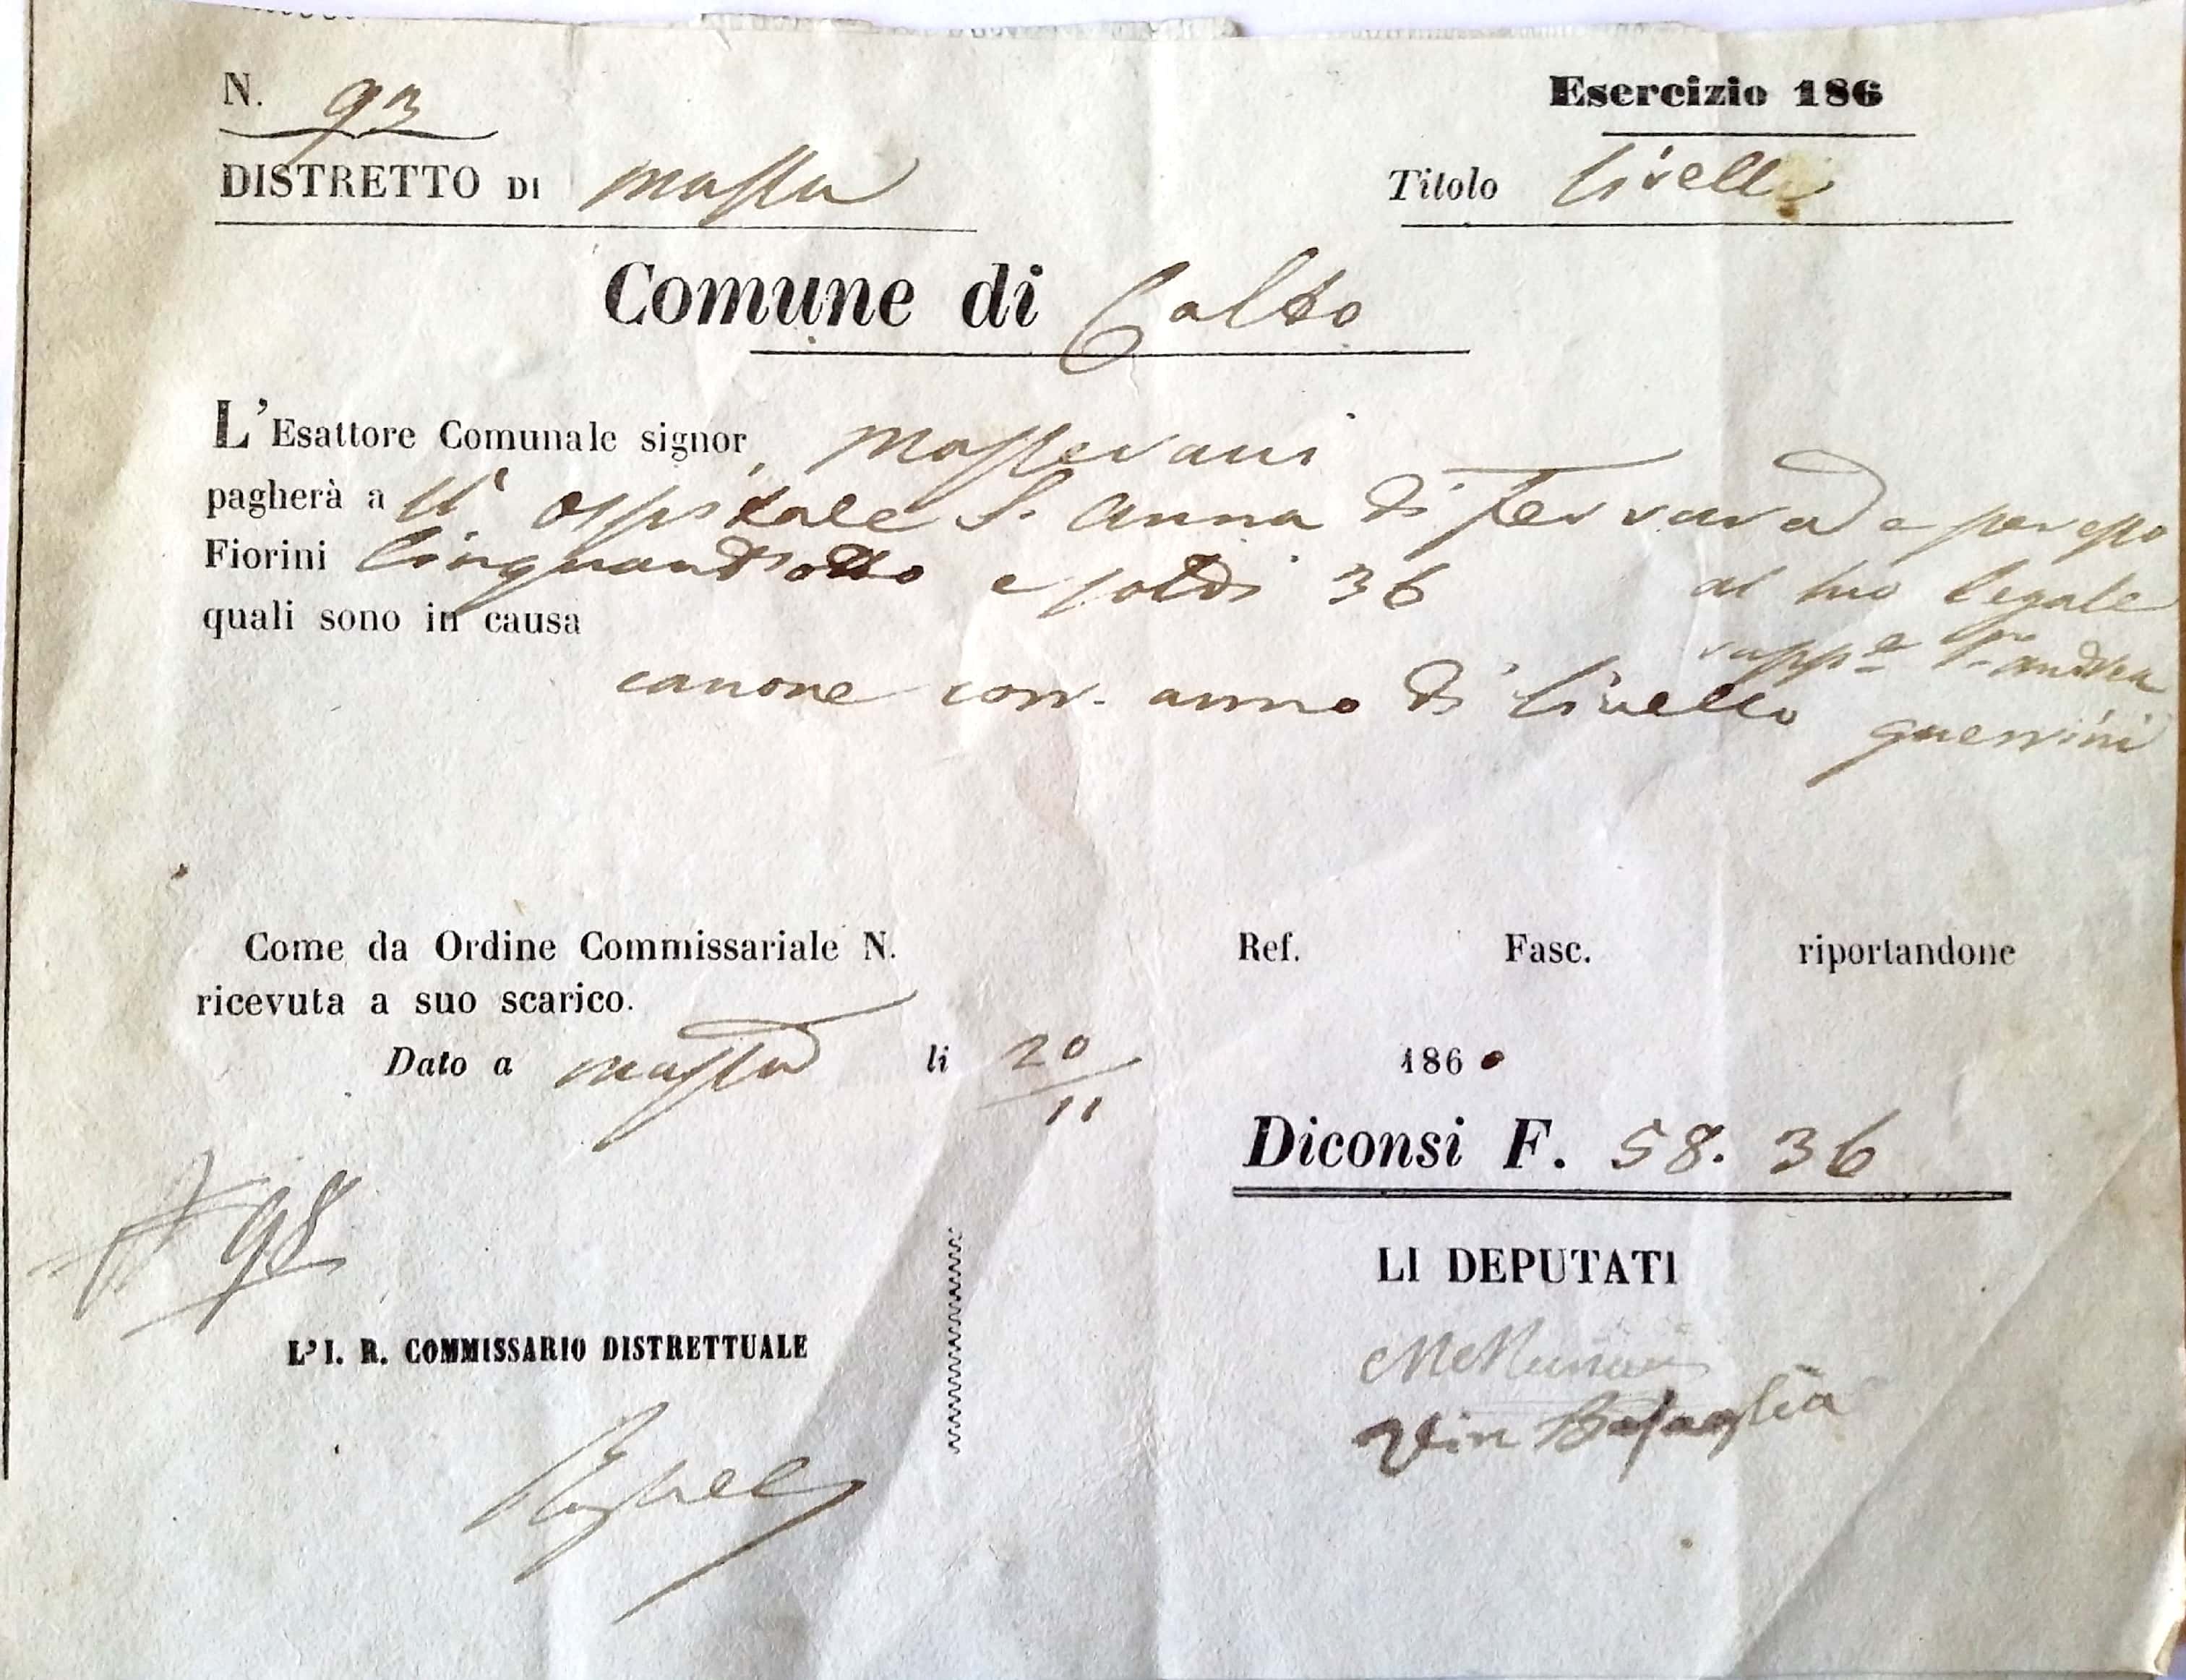 N. 93
Esercizio 186
DISTRETTO DI Massa
Titolo Livelli
Comune di Calto
L'Esattore Comunale signor
pagherà all' Ospitale S. Anna di Ferrara e per esso
Fiorini Cinquantotto e soldi 36
al suo legale
quali sono in causa
rapp.e Andrea
canone corr. anno di livello
Guerrini
Come da Ordine Commissariale N. Ref. Fasc. riportandone
ricevuta a suo scarico.
Dato a Massa li 20/11 1860
Diconsi F. 58. 36
98
LI DEPUTATI
L'I. R. COMMISSARIO DISTRETTUALE
Vin Basaglia